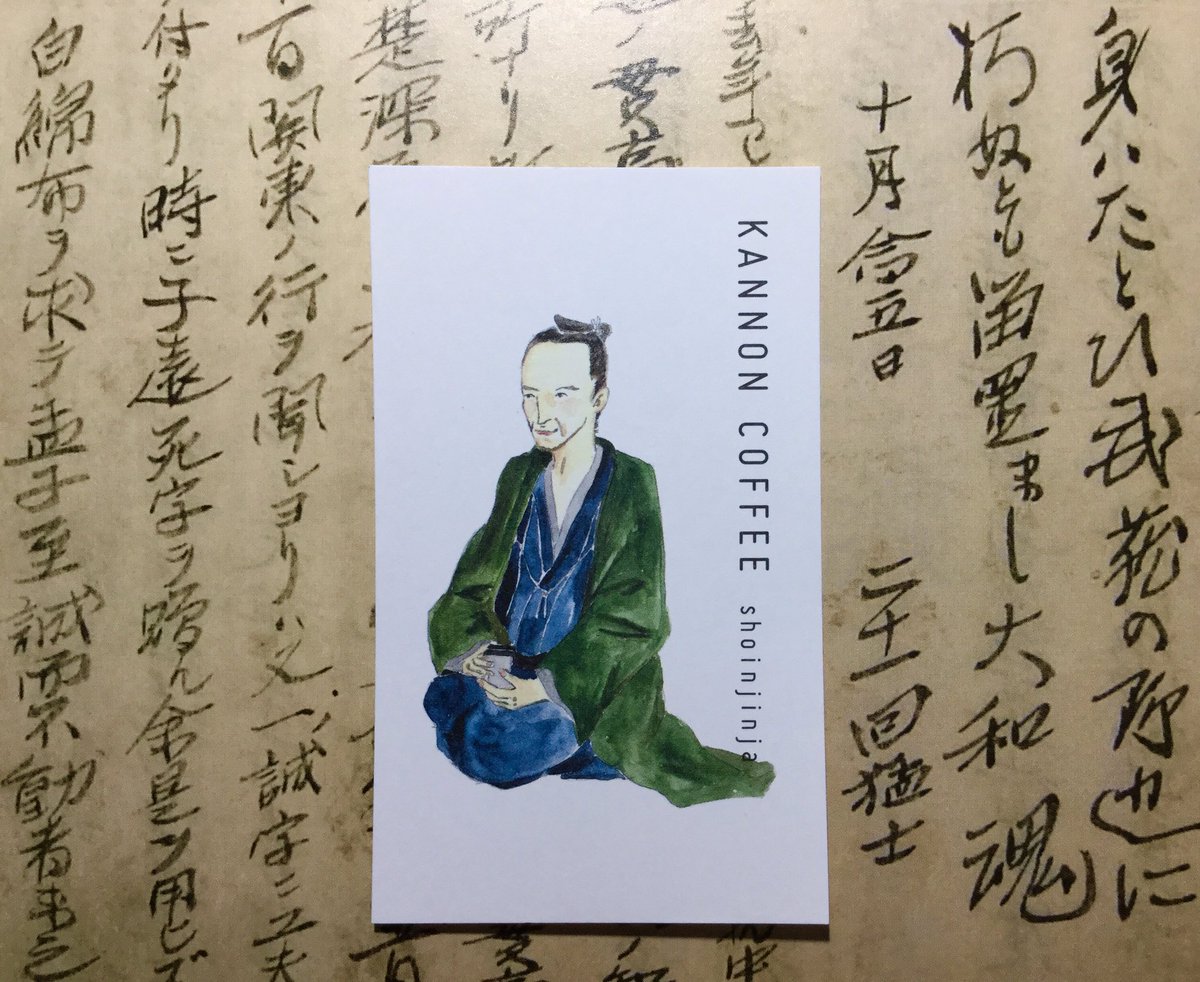 身ハたとひ武蔵の野辺に
朽ぬとも留置まし大和魂
十月念五日 二十一回猛士
年已
ノ貫高
所ナリ
楚深
日関東ノ行ヲ聞シヨリハ又一ノ誠字ニ工夫
付タリ時ニ子遠死字ヲ贈ル余是ヲ用ヒズ
白綿布ヲ求テ孟子至誠而不動者未之
KANNON COFFEE shoinjinja